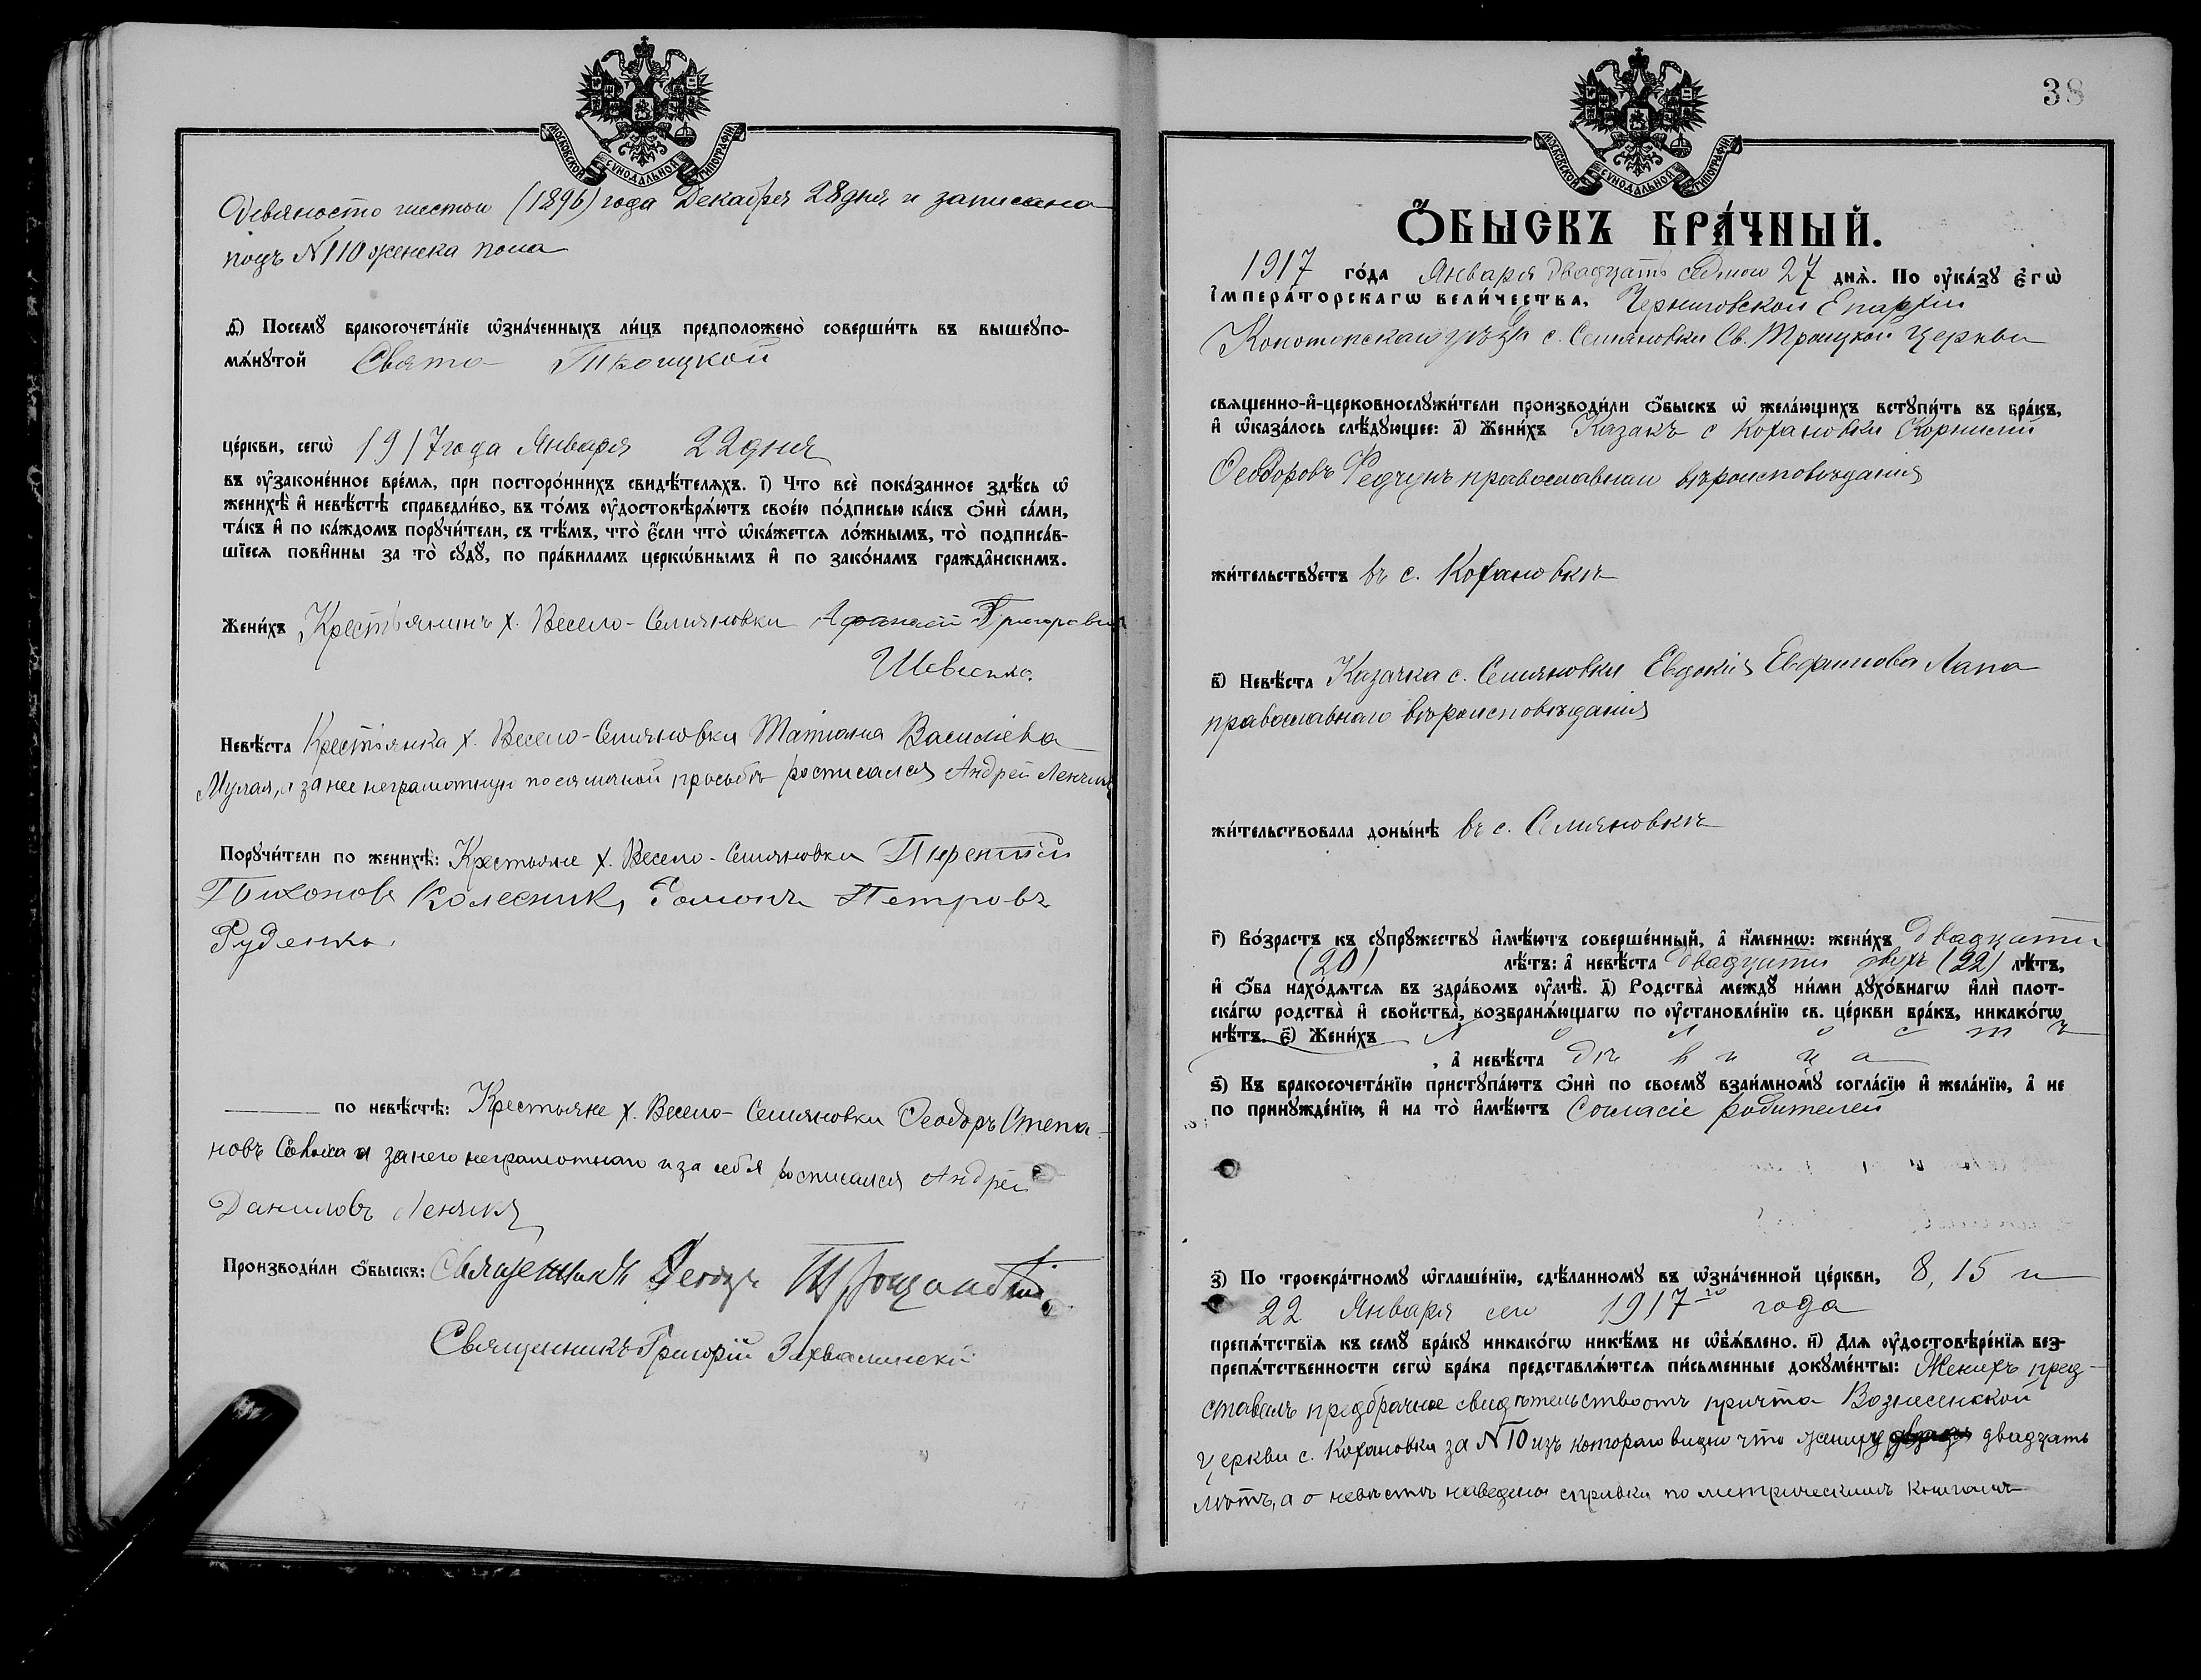 МОСКОВСКОЙ СУНОДАЛЬНОЙ ТИПОГРАФІИ
Девяносто шестого (1896) года Декабря 28 дня и записано
подъ N 110 женска пола
д҃і) Посемꙋ бракосочета́нїе ѡ҆зна́ченныхъ ли́цъ предположено̀ соверши́ть въ вышеꙋпо-
мѧ́нꙋтой Свято Троицкой
це́ркви, сегѡ̀ 1917 года Января 22 дня
въ ᲂу҆зако́ненное вре́мѧ, при посторо́ннихъ свидѣ́телѧхъ. і҃) Что всѐ пока́занное здѣ́сь ѡ҆
женихѣ̀ и҆ невѣ́стѣ справедли́во, въ то́мъ ᲂу҆достовѣрѧ́ютъ свое́ю по́дписью ка́къ ѻ҆нѝ са́ми,
та́къ и҆ по ка́ждомъ порꙋчи́тели, съ тѣ́мъ, что̀ є҆́сли что̀ ѡ҆ка́жетсѧ ло́жнымъ, то̀ подписа́в-
шїесѧ пови́нны за то̀ сꙋдꙋ̀, по пра́виламъ церкѡ́внымъ и҆ по зако́намъ гражда́нскимъ.
Жени́хъ Крестьянинъ х. Весело-Семяновки Афанасій Григорьевъ
Шевченко.
Невѣ́ста Крестьянка х. Весело-Семяновки Татіана Васильева
а за нее неграмотную по ея личной просьбѣ росписался Андрей
Порꙋчи́тели по женихѣ̀: Крестьяне х. Весело-Семяновки Терентій
Тихоновъ Колесникъ, Романъ Петровъ
Руденко.
по невѣ́стѣ: Крестьяне х. Весело-Семяновки Ѳеодоръ Степа-
новъ а за него неграмотнаго и за себя росписался Андрей
Даниловъ
Производи́ли ѻ҆́быскъ: Священникъ
Священникъ Григорій
38
МОСКОВСКОЙ СУНОДАЛЬНОЙ ТИПОГРАФІИ
Ѻ҆́БЫСКЪ БРА́ЧНЫЙ.
1917 го́да Января двадцать седмого 27 днѧ̀. По ᲂу҆ка́зꙋ є҆гѡ̀
і҆мпера́торскагѡ вели́чества, Черниговской Епархіи
Конотопскаго уѣзда с. Семяновки Св. Троицкой церкви
свѧщенно-и҆-церковнослꙋжи́тели производи́ли ѻ҆́быскъ ѡ҆ жела́ющихъ встꙋпи́ть въ бра́къ,
и҆ ѡ҆каза́лось слѣ́дꙋющее: а҃) Жени́хъ Казакъ с Кохановки Корнилій
Ѳеодоровъ Федчунъ православнаго вѣроисповѣданія
жи́тельствꙋетъ въ с. Кохановкѣ
в҃) Невѣ́ста Казачка с. Семяновки Евдокія Евфимова Лапа
православнаго вѣроисповѣданія
жи́тельствовала доны́нѣ въ с. Семяновкѣ
г҃) Во́зрастъ къ сꙋпрꙋ́жествꙋ и҆мѣ́ютъ соверше́нный, а҆ и҆́меннѡ: жени́хъ двадцати
(20) лѣ́тъ: а҆ невѣ́ста двадцати двухъ (22) лѣ́тъ,
и҆ ѻ҆́ба нахо́дѧтсѧ въ здра́вомъ ᲂу҆мѣ̀. д҃) Родства̀ междꙋ̀ ни́ми дꙋхо́внагѡ и҆лѝ плот-
ска́гѡ родства̀ и҆ сво́йства̀, возбранѧ́ющагѡ по ᲂу҆становле́нїю св. це́ркви бра́къ, никако́гѡ
нѣ́тъ. є҃) Жени́хъ холостъ
, а҆ невѣ́ста дѣвица
ѕ҃) Къ бракосочета́нїю пристꙋпа́ютъ ѻ҆нѝ по своемꙋ̀ взаи́мномꙋ согла́сїю и҆ жела́нїю, а҆ не
по принꙋжде́нїю, и҆ на то̀ и҆мѣ́ютъ Согласіе родителей
з҃) По троекра́тномꙋ ѡ҆глаше́нїю, сдѣ́ланномꙋ въ ѡ҆зна́ченной це́ркви, 8, 15 и
22 Января сего 1917го года
препѧ́тствїѧ къ семꙋ̀ бра́кꙋ никако́гѡ никѣ́мъ не ѡ҆б̾ѧ́влено. и҃) Длѧ̀ ᲂу҆достовѣре́нїѧ без-
препѧ́тственности сегѡ̀ бра́ка представлѧ́ютсѧ пи́сьменные докꙋме́нты: Женихъ пред-
ставилъ предбрачное свидѣтельство отъ причта Вознесенской
церкви с. Кохановки за N 10 изъ котораго видно что жениху двадцать
лѣтъ, а о невѣстѣ наведены справки по метрическимъ книгамъ